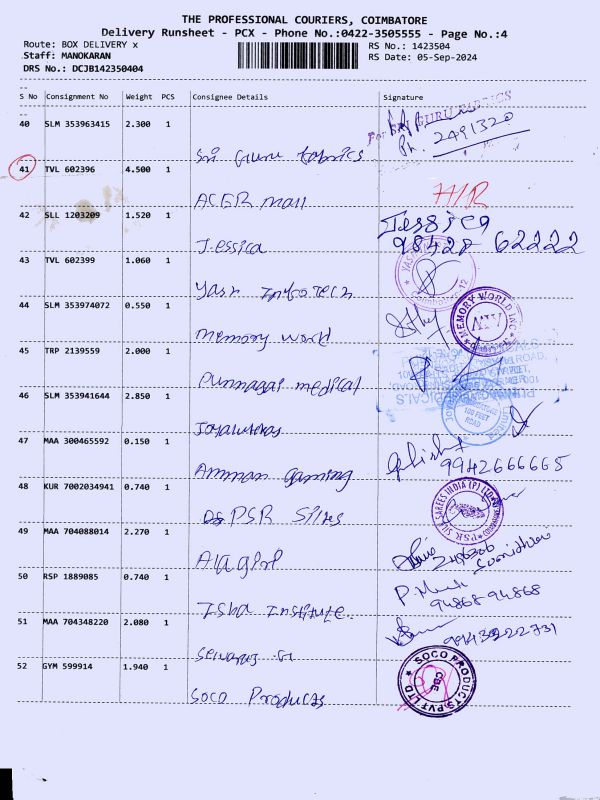 THE PROFESSIONAL COURIERS, COIMBATORE
Delivery Runsheet - PCX - Phone No.:0422-3505555 - Page No.:4
Route: BOX DELIVERY x
RS No.: 1423504
Staff: MANOKARAN
RS Date: 05-Sep-2024
DRS No.: DCJB142350404
S No Consignment No Weight PCS Consignee Details Signature
40 SLM 353963415 2.300 1
For SRI GURU FABRICS
Ph. 2491320
Sri Guru fabrics
41 TVL 602396 4.500 1
ACER mall
42 SLL 1203209 1.520 1
Jessica
98428 62222
Jessica
43 TVL 602399 1.060 1
Yash Infotech
44 SLM 353974072 0.550 1
MEMORY WORLD INC
Memory world
45 TRP 2139559 2.000 1
Punnagai medical
46 SLM 353941644 2.850 1
100 FEET
ROAD
47 MAA 300465592 0.150 1
9942666665
Amman gaming
48 KUR 7002034941 0.740 1
P.S.R. SILK SAREES INDIA (P) LTD
PSR Silks
49 MAA 704088014 2.270 1
50 RSP 1889085 0.740 1
94868 94868
Isha Institute.
51 MAA 704348220 2.080 1
52 GYM 599914 1.940 1
SOCO PRODUCTS PVT LTD
CBE
Soco Products